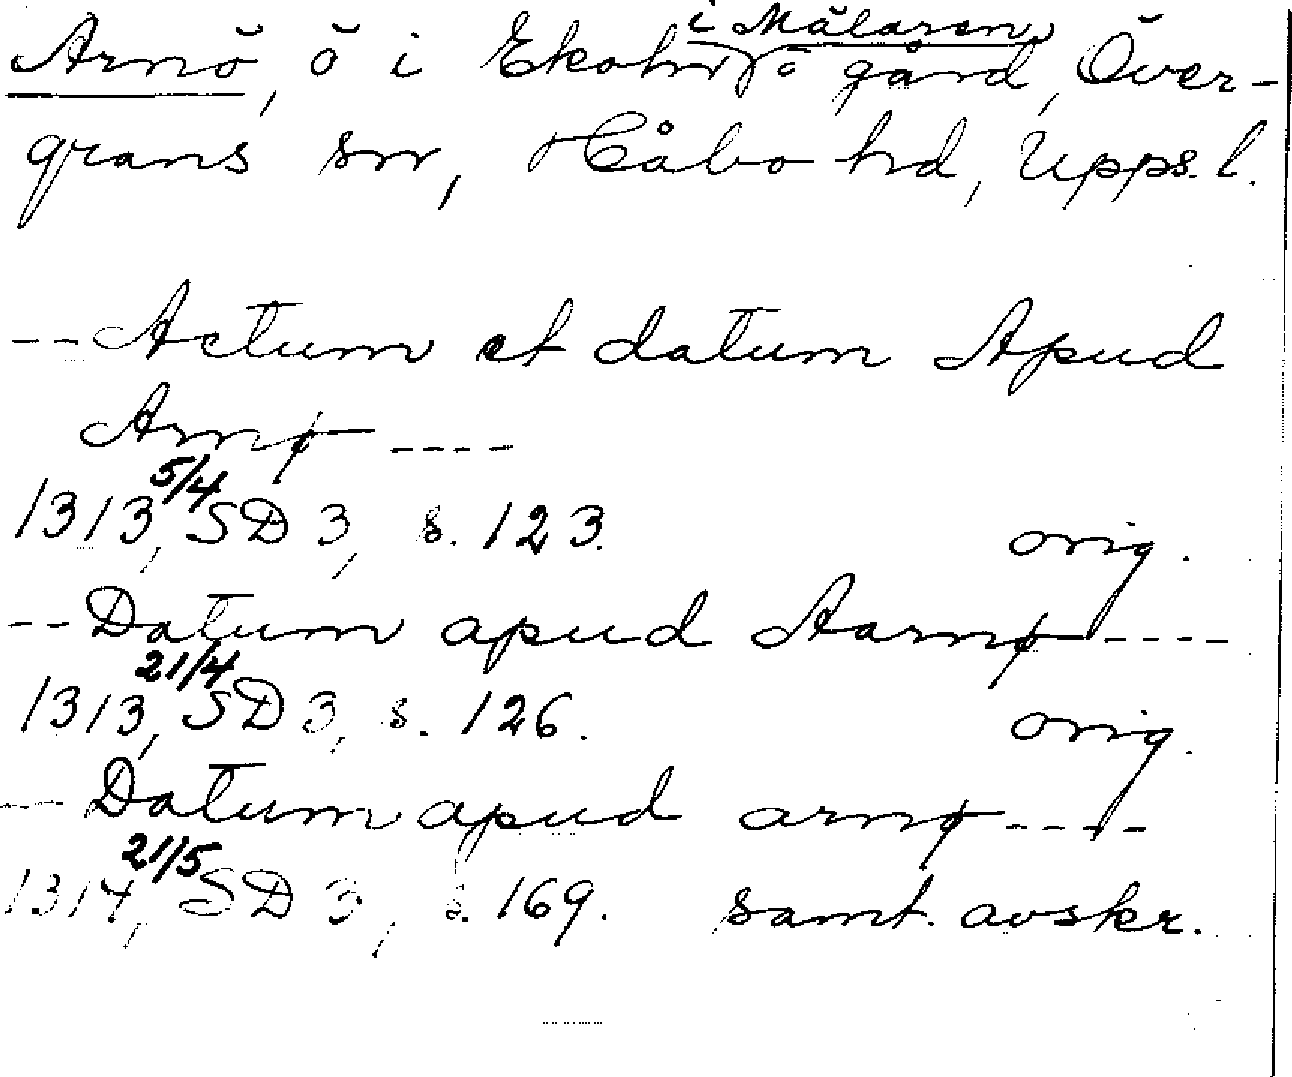 i Mälaren
Arnö, ö i Ekoln, o gård, Över-
grans sn, Håbo hd, Upps. l.
-- Actum et datum Apud
Arnø ----
1313 5/4, SD 3, s. 123. orig.
-- Datum apud Aarnø ----
1313 21/4, SD 3, s. 126. orig.
-- Datum apud arnø ----
1314 21/5, SD 3, s. 169. samt. avskr.